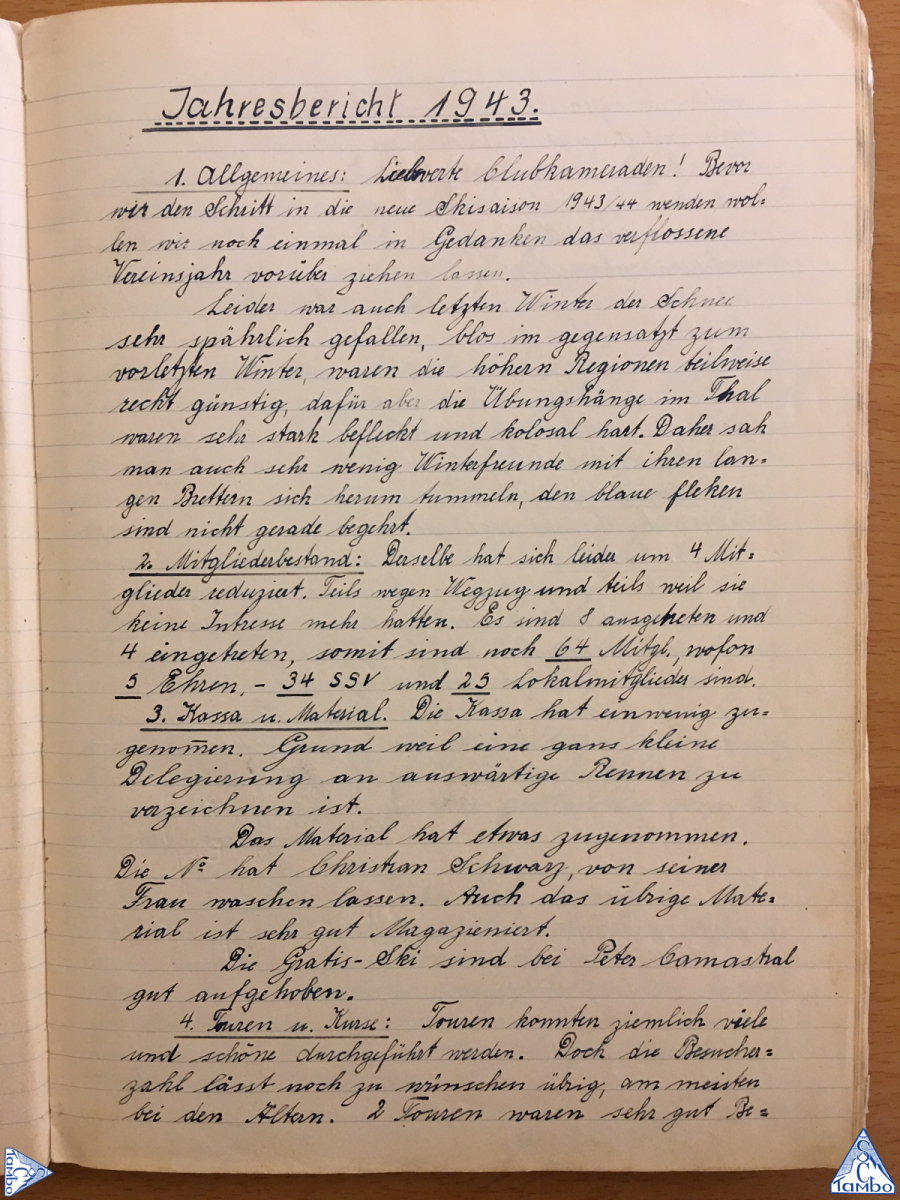 Jahresbericht 1943.
1. Allgemeines: Liebwerte Clubkameraden! Bevor
wir den Schritt in die neue Skisaison 1943/44 wenden wol=
len wir noch einmal in Gedanken das verflossene
Vereinsjahr vorüber ziehen lassen.
Leider war auch letzten Winter der Schnee
sehr spährlich gefallen, blos im gegensatzt zum
vorletzten Winter, waren die höhern Regionen teilweise
recht günstig, dafür aber die Übungshänge im Thal
waren sehr stark befleckt und kolosal hart. Daher sah
man auch sehr wenig Winterfreunde mit ihren lan=
gen Brettern sich herum tummeln, den blaue fleken
sind nicht gerade begehrt.
2. Mitgliederbestand: Derselbe hat sich leider um 4 Mit=
glieder reduziert. Teils wegen Wegzug und teils weil sie
keine Intresse mehr hatten. Es sind 8 ausgetreten und
4 eingetreten, somit sind noch 64 Mitgl., wofon
5 Ehren, - 34 SSV und 25 Lokalmitglieder sind.
3. Kassa u. Material. Die Kassa hat einwenig zu=
genom̅en. Grund weil eine gans kleine
Delegierung an auswärtige Rennen zu
verzeichnen ist.
Das Material hat etwas zugenommen.
Die No hat Christian Schwarz, von seiner
Frau waschen lassen. Auch das übrige Mate=
rial ist sehr gut Magazieniert.
Die Gratis-Ski sind bei Peter Camastral
gut aufgehoben.
4. Touren u. Kurse: Touren konnten ziemlich viele
und schöne durchgeführt werden. Doch die Besucher=
zahl lässt noch zu wünschen übrig, am meisten
bei den Ältern. 2 Touren waren sehr gut Be=
SC
Tambo
SC
Tambo